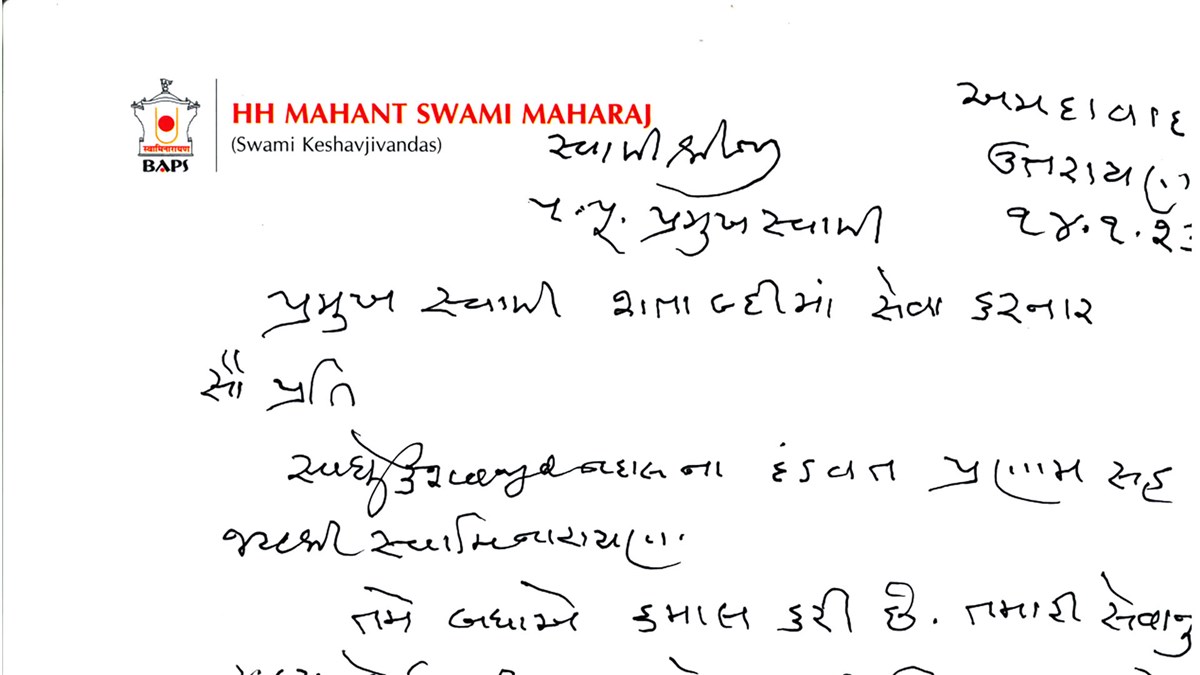 HH MAHANT SWAMI MAHARAJ
(Swami Keshavjivandas)
स्वामिनारायण
BAPS
અમદાવાદ
ઉત્તરાયણ
૧૪.૧.૨૩
સ્વામીશ્રીજી
પ.પૂ. પ્રમુખ સ્વામી
પ્રમુખ સ્વામી શતાબ્દીમાં સેવા કરનાર
સૌ પ્રતિ
સાધુ કેશવજીવનદાસના દંડવત પ્રણામ સહ
જયશ્રી સ્વામિનારાયણ.
તમે બધાએ કમાલ કરી છે. તમારી સેવાનુ